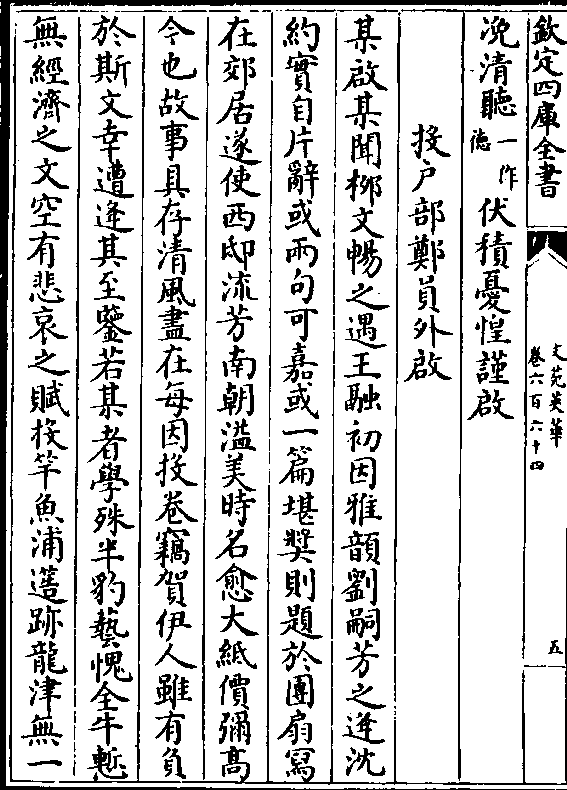 欽定四庫全書
文苑英華
卷六百六十四
五
浼清聽一作德伏積憂惶謹啟
投戶部鄭員外啟
某啟某聞栁文暢之遇王融初因雅韻劉嗣芳之逢沈
約實自片辭或兩句可嘉或一篇堪奬則題於團扇寫
在郊居遂使西邸流芳南朝溢美時名愈大紙價彌髙
令也故事具存清風盡在每因投卷竊賀伊人雖有負
於斯文幸遭逢其至鑒若某者學殊半豹藝愧全牛慙
無經濟之文空有悲哀之賦投竿魚浦簉跡龍津無一